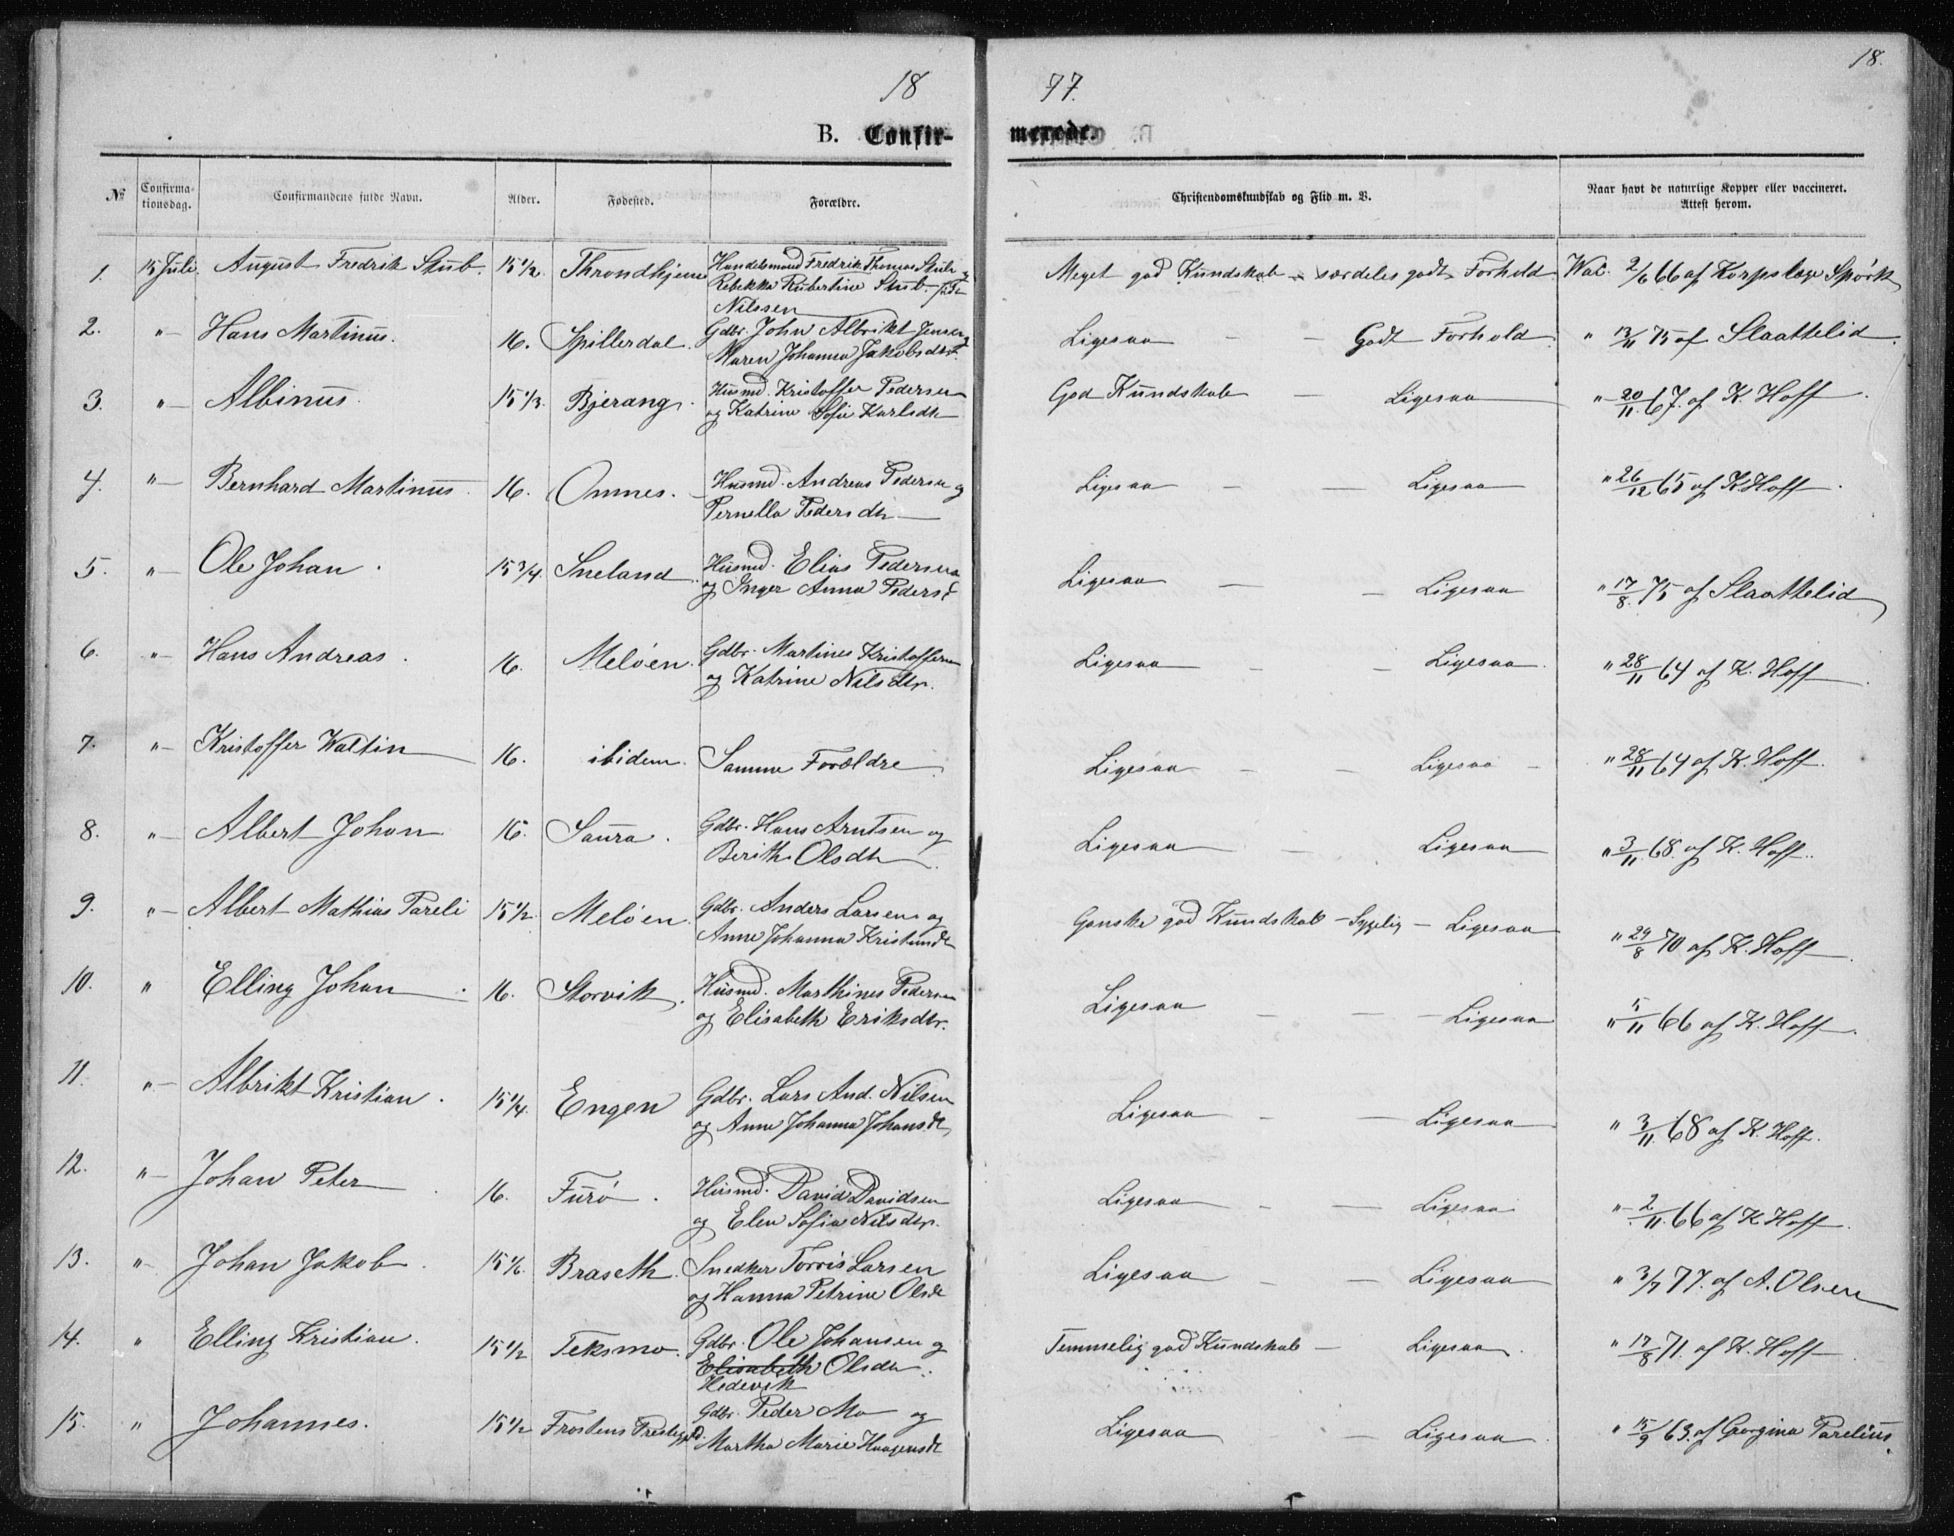 18
18 77.
B. Confir- merede.
№ Confirma-tionsdag. Confirmandens fulde Navn. Alder. Fødested. Forældre. Christendomskundskab og Flid m. V. Naar havt de naturlige Kopper eller vaccineret. Attest herom.
1. 15 Juli. August Fredrik Stub. 15 1/2. Throndhjem Handelsmand Fredrik Thomas Stub og Meget god Kundskab - særdeles godt Forhold Vac. 2/6 66 af Korpslæge Spörk
Rebekka Kubertine Stub. født
Nilssen
2. "- Hans Martinus. 16. Spillerdal. Gdbr. John Albrikt Jensen og Ligesaa - - Godt Forhold " 13/11 75 af Slaattelid.
Maren Johanna Jakobsdtr.
3. "- Albinus. 15 1/3. Bjerang. Husmd. Kristoffer Pedersen God Kundskab - Ligesaa "- 20/11. 67. af K. Hoff.
og Katrine Sofie Karlsdtr
4. "- Bernhard Martinus. 16. Omnes. Husmd. Andreas Pedersen og Ligesaa - - Ligesaa " 26/12 65 af K. Hoff.
Pernella Pedersdtr
5. "- Ole Johan. 15 3/4. Sneland. Husmd. Elias Pedersen Ligesaa - - Ligesaa " 17/8. 75 af Slaattelid
og Inger Anna Pedersd
6. "- Hans Andreas. 16. Melöen. Gdbr. Martines Kristoffersen Ligesaa - - Ligesaa. " 28/11 64 af K. Hoff.
og Katrine Nilsdtr.
7. "- Kristoffer Waltin 16. ibidem. Samme Forældre. Ligesaa - - Ligesaa - " 28/11 64 af K. Hoff.
8. "- Albert Johan 15. Saura. Gdbr. Hans Arntsen og Ligesaa - - Ligesaa " 3/11. 68. af K. Hoff.
Berith Olsdtr.
9. "- Albert Mathias Pareli 15 1/2 Melöen. Gdbr. Anders Larsen og Ganske god Kundskab - Sygelig - Ligesaa " 29/8 70 af K. Hoff.
Anne Johanna Kristensdt
10. " Elling Johan. 16. Storvik. Husmd. Marthines Pedersen Ligesaa - - - Ligesaa " 5/11 66 af K. Hoff.
og Elisabeth Eriksdtr.
11. "- Albrikt Kristian. 15 1/4. Engen Gdbr. Lars And. Nilsen Ligesaa - - Ligesaa " 3/11 68 af K. Hoff.
og Anne Johanna Johansdt,
12. "- Johan Peter. 16. Furö. Husmd. David Davidsen Ligesaa - - Ligesaa "- 2/11. 66 af K. Hoff.
og Elen Sofia Nilsdtr.
13. "- Johan Jakob. 15 1/6. Braseth. Snedker Torris Larsen Ligesaa - - Ligesaa " 3/7 77. af A. Olsen
og Hanna Petrine Olsdt
14. " Elling Kristian. 15 1/2 Teksmo. Gdbr. Ole Johansen og Temmelig god Kundskab - Ligesaa. " 17/8 71. af K. Hoff.
Elisabeth Olsdtr.
Hedevik
15. " Johannes. 15 1/2 Frostens Prestegjeld. Gdbr. Peder Mo og Ligesaa - Ligesaa. " 15/9 63. af Georgina Parelius.
Martha Marie Haagensdt